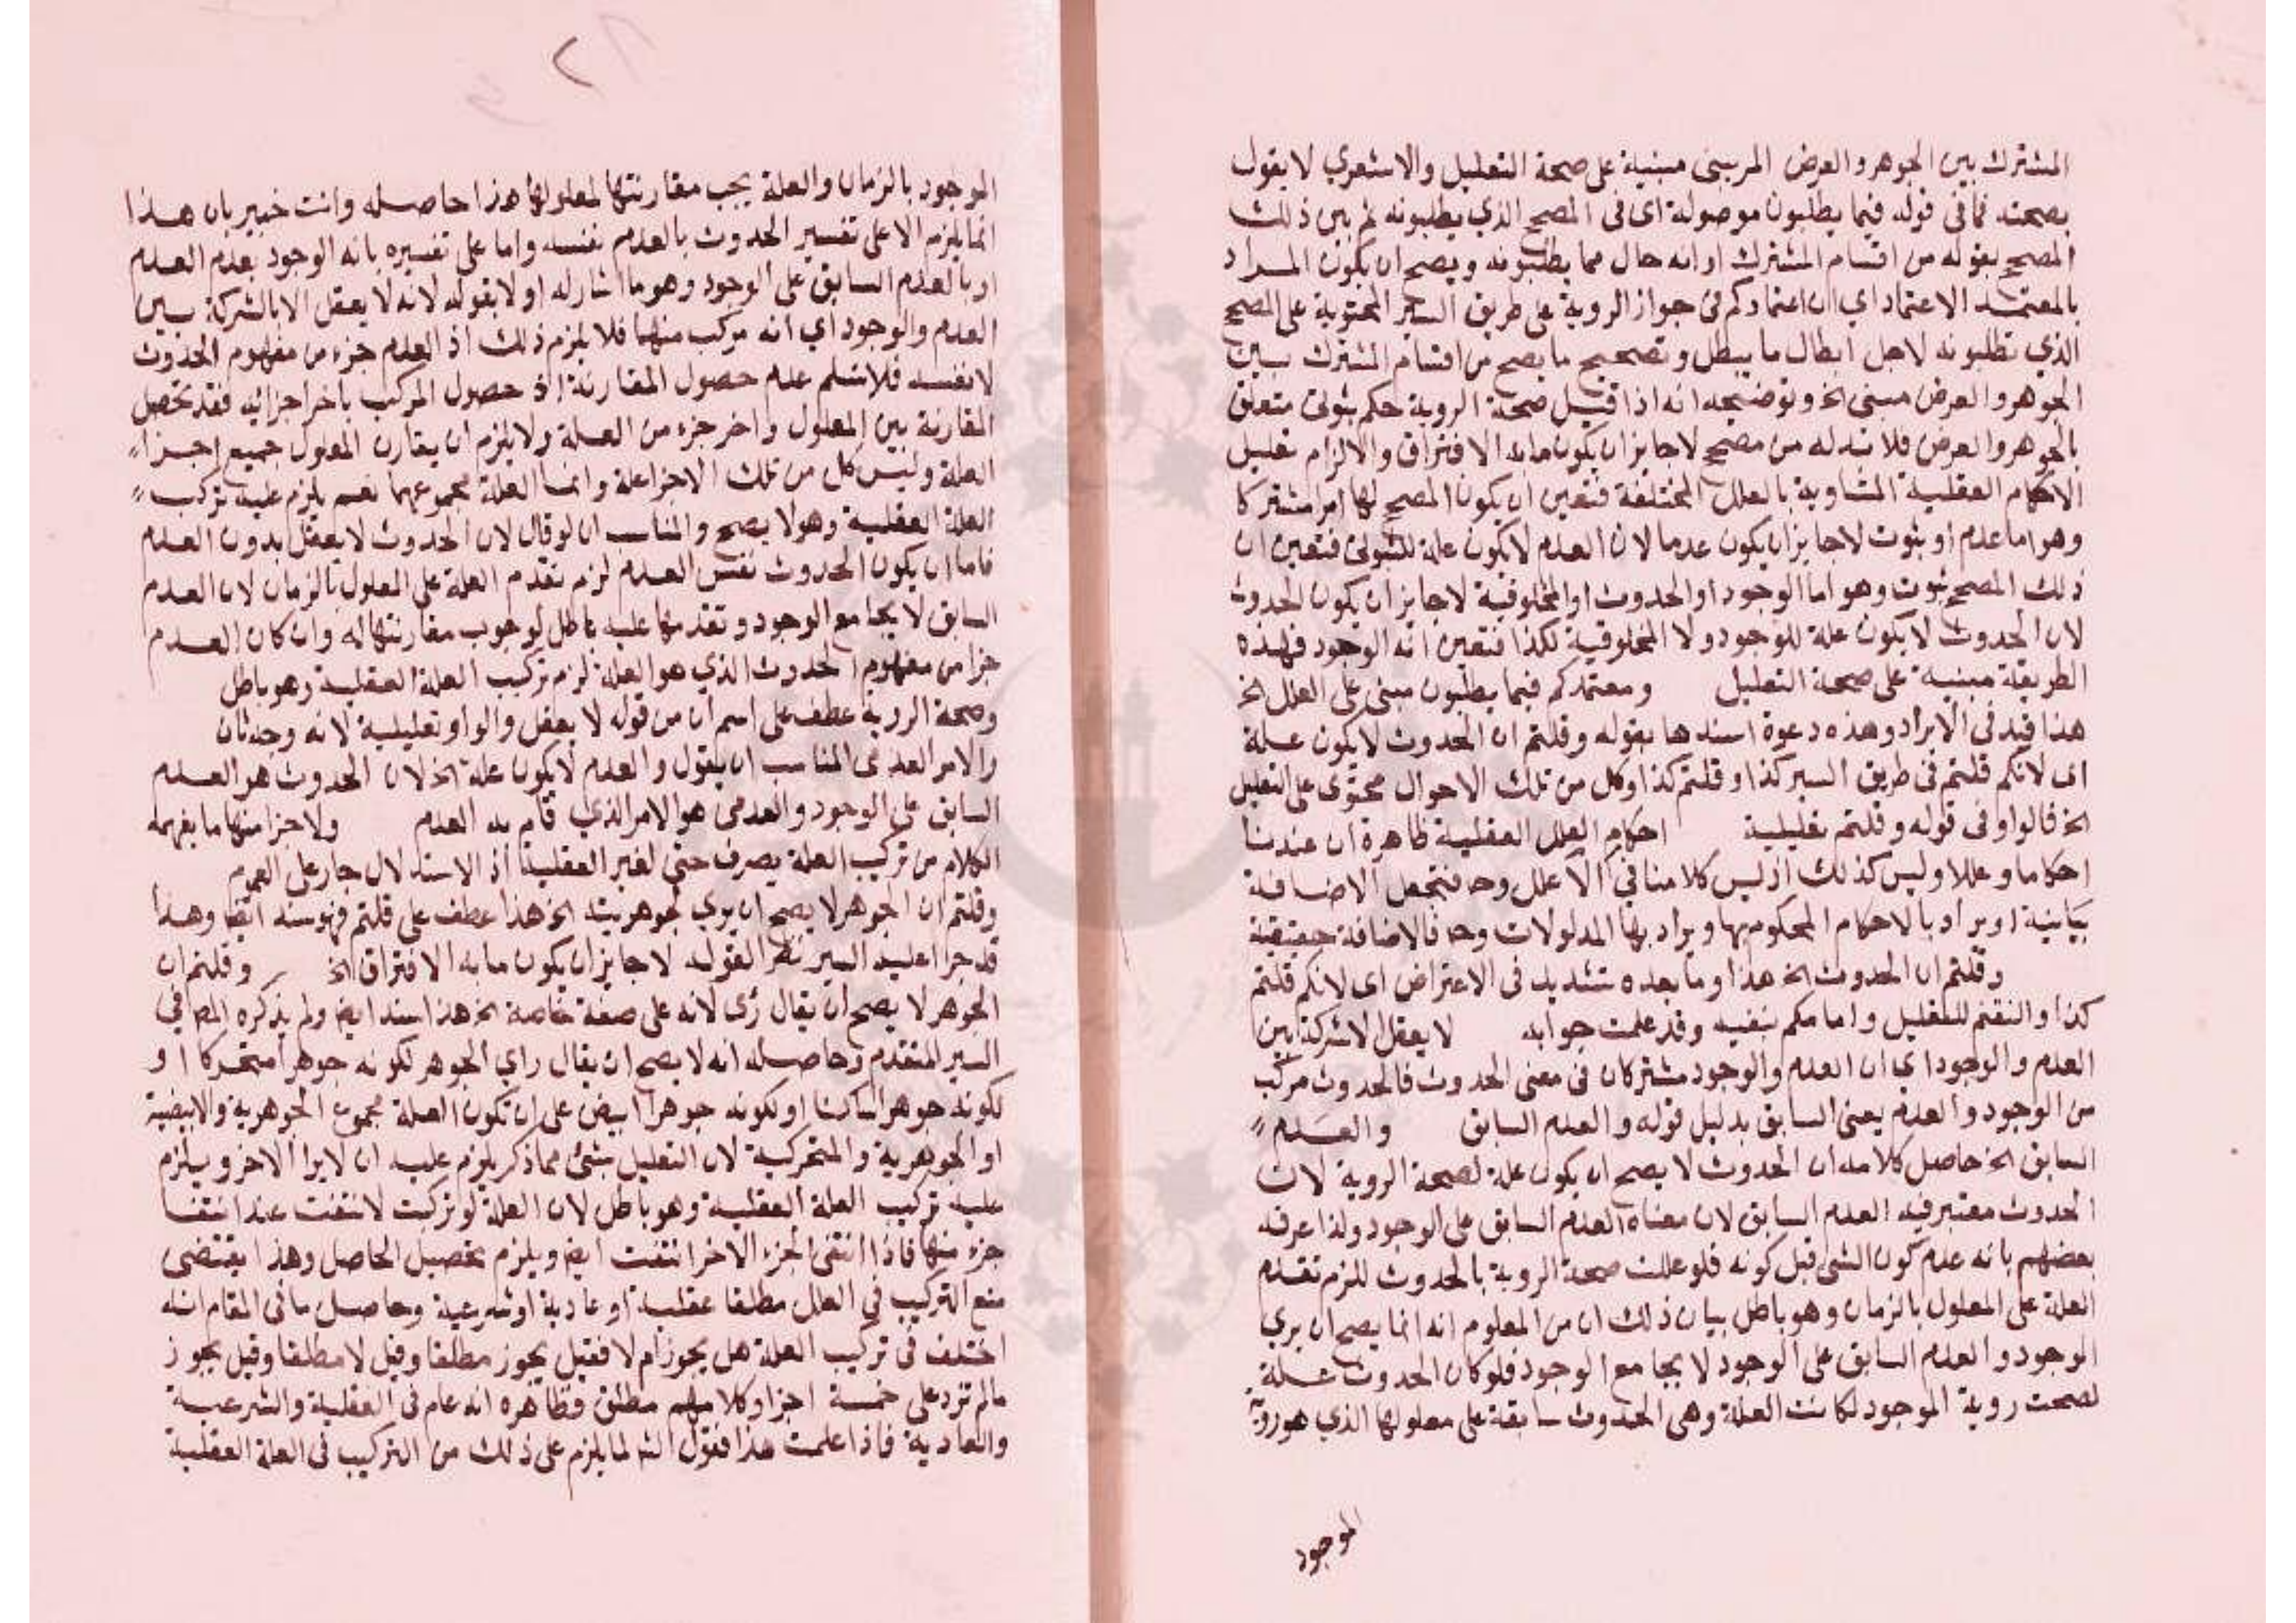 المشترك بين الجوهر والعرض المريبين مبنية على صحة التعليل والاشعري لا يقول
بصحته فما في قوله فيما يطلبون موصولة اى فى المصحح الذي يطلبونه ثم بين ذلك
المصحح بقوله من اقسام المشترك او انه حال مما يطلبونه ويصح ان يكون المراد
بالمعتمد الاعتماد اي ان اعتمادكم في جواز الروية على طريق السبر المحتوية على المصحح
الذي تطلبونه لاجل ابطال ما يبطل وتصحيح ما يصح من اقسام المشترك بين
الجوهر والعرض مبنى الخ وتوضيحه انه اذا قيل صحة الروية حكم ثبوتى متعلق
بالجوهر والعرض فلا بد له من مصحح لا جايز ان يكون ما به الافتراق والا لزم تعليل
الاحكام العقلية المتساوية بالعلل المختلفة فتعين ان يكون المصحح لها امر مشتركا
وهو اما عدم او ثبوت لا جايز ان يكون عدما لان العدم لا يكون علة للثبوتى فتعين ان
ذلك المصحح ثبوت وهو اما الوجود او الحدوث او المخلوقية لا جايز ان يكون الحدوث
لان الحدوث لا يكون علة للوجود ولا المخلوقية لكذا فتعين انه الوجود فهذه
الطريقة مبنية على صحة التعليل ومعتمدكم فيما يطلبون مبنى على العلل الخ
هذا قيد فى الايراد وهذه دعوة اسندها بقوله وقلتم ان الحدوث لا يكون علة
اى لانكم قلتم فى طريق السبر كذا وقلتم كذا وكل من تلك الاحوال محتوى على التعليل
الخ فالواو فى قوله وقلتم تعليلية احكام العلل العقلية ظاهره ان عندنا
احكاما وعللا وليس كذلك اذ ليس كلامنا في الا علل وح فتجعل الاضافة
بيانية او يراد بالاحكام المحكوم بها ويراد بها المدلولات وح فالاضافة حقيقية
وقلتم ان الحدوث الخ هذا وما بعده تشديد فى الاعتراض اى لانكم قلتم
كذا والتفتم للتعليل وامامكم ينفيه وقد علمت جوابه لا يعقل الا شركة بين
العدم والوجود اي ان العدم والوجود مشتركان فى معنى الحدوث فالحدوث مركب
من الوجود والعدم يعنى السابق بدليل قوله والعدم السابق والعدم
السابق الخ حاصل كلامه ان الحدوث لا يصح ان يكون علة لصحة الروية لان
الحدوث معتبر فيه العدم السابق لان معناه العدم السابق على الوجود ولذا عرفه
بعضهم بانه عدم كون الشى قبل كونه فلو عللت صحة الروية بالحدوث للزم تقدم
العلة على المعلول بالزمان وهو باطل بيان ذلك ان من المعلوم انه انما يصح ان يرى
الموجود والعدم السابق على الوجود لا يجامع الوجود فلو كان الحدوث علة
لصحت روية الموجود لكانت العلة وهى الحدوث سابقة على معلولها الذي هو روية
الموجود
الموجود بالزمان والعلة يجب مقارنتها لمعلولها هذا حاصله وانت خبير بان هذا
انما يلزم الا على تفسير الحدوث بالعدم نفسه واما على تفسيره بانه الوجود بعدم العدم
او بالعدم السابق على الوجود وهو ما اشار له اولا بقوله لانه لا يعقل الا بالشركة بين
العدم والوجود اي انه مركب منهما فلا يلزم ذلك اذ العدم جزء من مفهوم الحدوث
لا نفسه فلا نسلم عدم حصول المقارنة اذ حصول المركب باخر اجزائه فقد تحصل
المقارنة بين المعلول واخر جزء من العلة ولا يلزم ان يقارن المعلول جميع اجزاء
العلة وليس كل من تلك الاجزا علة وانما العلة مجموعهما نعم يلزم عليه تركب
العلة العقلية وهو لا يصح والمناسب ان لو قال لان الحدوث لا يعقل بدون العدم
فاما ان يكون الحدوث نفس العدم لزم تقدم العلة على المعلول بالزمان لان العدم
السابق لا يجامع الوجود وتقدمها عليه باطل لوجوب مقارنتها له وان كان العدم
جزا من مفهوم الحدوث الذي هو العلة لزم تركيب العلة العقلية وهو باطل
وصحة الروية عطف على اسم ان من قوله لا يعقل والواو تعليلية لانه وجه ثان
والامر العدمى المناسب ان يقول والعدم لا يكون علة الخ لان الحدوث هو العدم
السابق على الوجود والعدمى هو الامر الذي قام به العدم ولا جزا منها ما يفهمه
الكلام من تركيب العلة يصرف حتى لغير العقلية اذ الاستدلال جار على العموم
وقلتم ان الجوهر لا يصح ان يرى لجوهريته الخ هذا عطف على قلتم فهو سند ايضا وهذا
قد جرا عليه السبر نظرا لقوله لا جايز ان يكون ما به الافتراق الخ وقلتم ان
الجوهر لا يصح ان يقال رؤى لانه على صفة خاصة الخ هذا سند ايض ولم يذكره المص في
السبر المتقدم وحاصله انه لا يصح ان يقال راي الجوهر لكونه جوهرا متحركا او
لكونه جوهرا ساكنا او لكونه جوهرا ابيض على ان تكون العلة مجموع الجوهرية والابيضية
او الجوهرية والمتحركية لان التعليل بشئ مما ذكر يلزم عليه ان لا يرا الاخر ويلزم
عليه تركيب العلة العقلية وهو باطل لان العلة لو تركبت لانتفت عند انتفا
جزء منها فاذا انتفى الجزء الاخر انتفت ايض ويلزم تحصيل الحاصل وهذا يقتضى
منع التركيب في العلل مطلقا عقلية او عادية او شرعية وحاصل ما فى المقام انه
اختلف فى تركيب العلة هل يجوز ام لا فقيل يجوز مطلقا وقيل لا مطلقا وقيل يجوز
مالم تزد على خمسة اجزا وكلامهم مطلق فظاهره انه عام فى العقلية والشرعية
والعادية فاذا علمت هذا فقول الش لما يلزم على ذلك من التركيب فى العلة العقلية